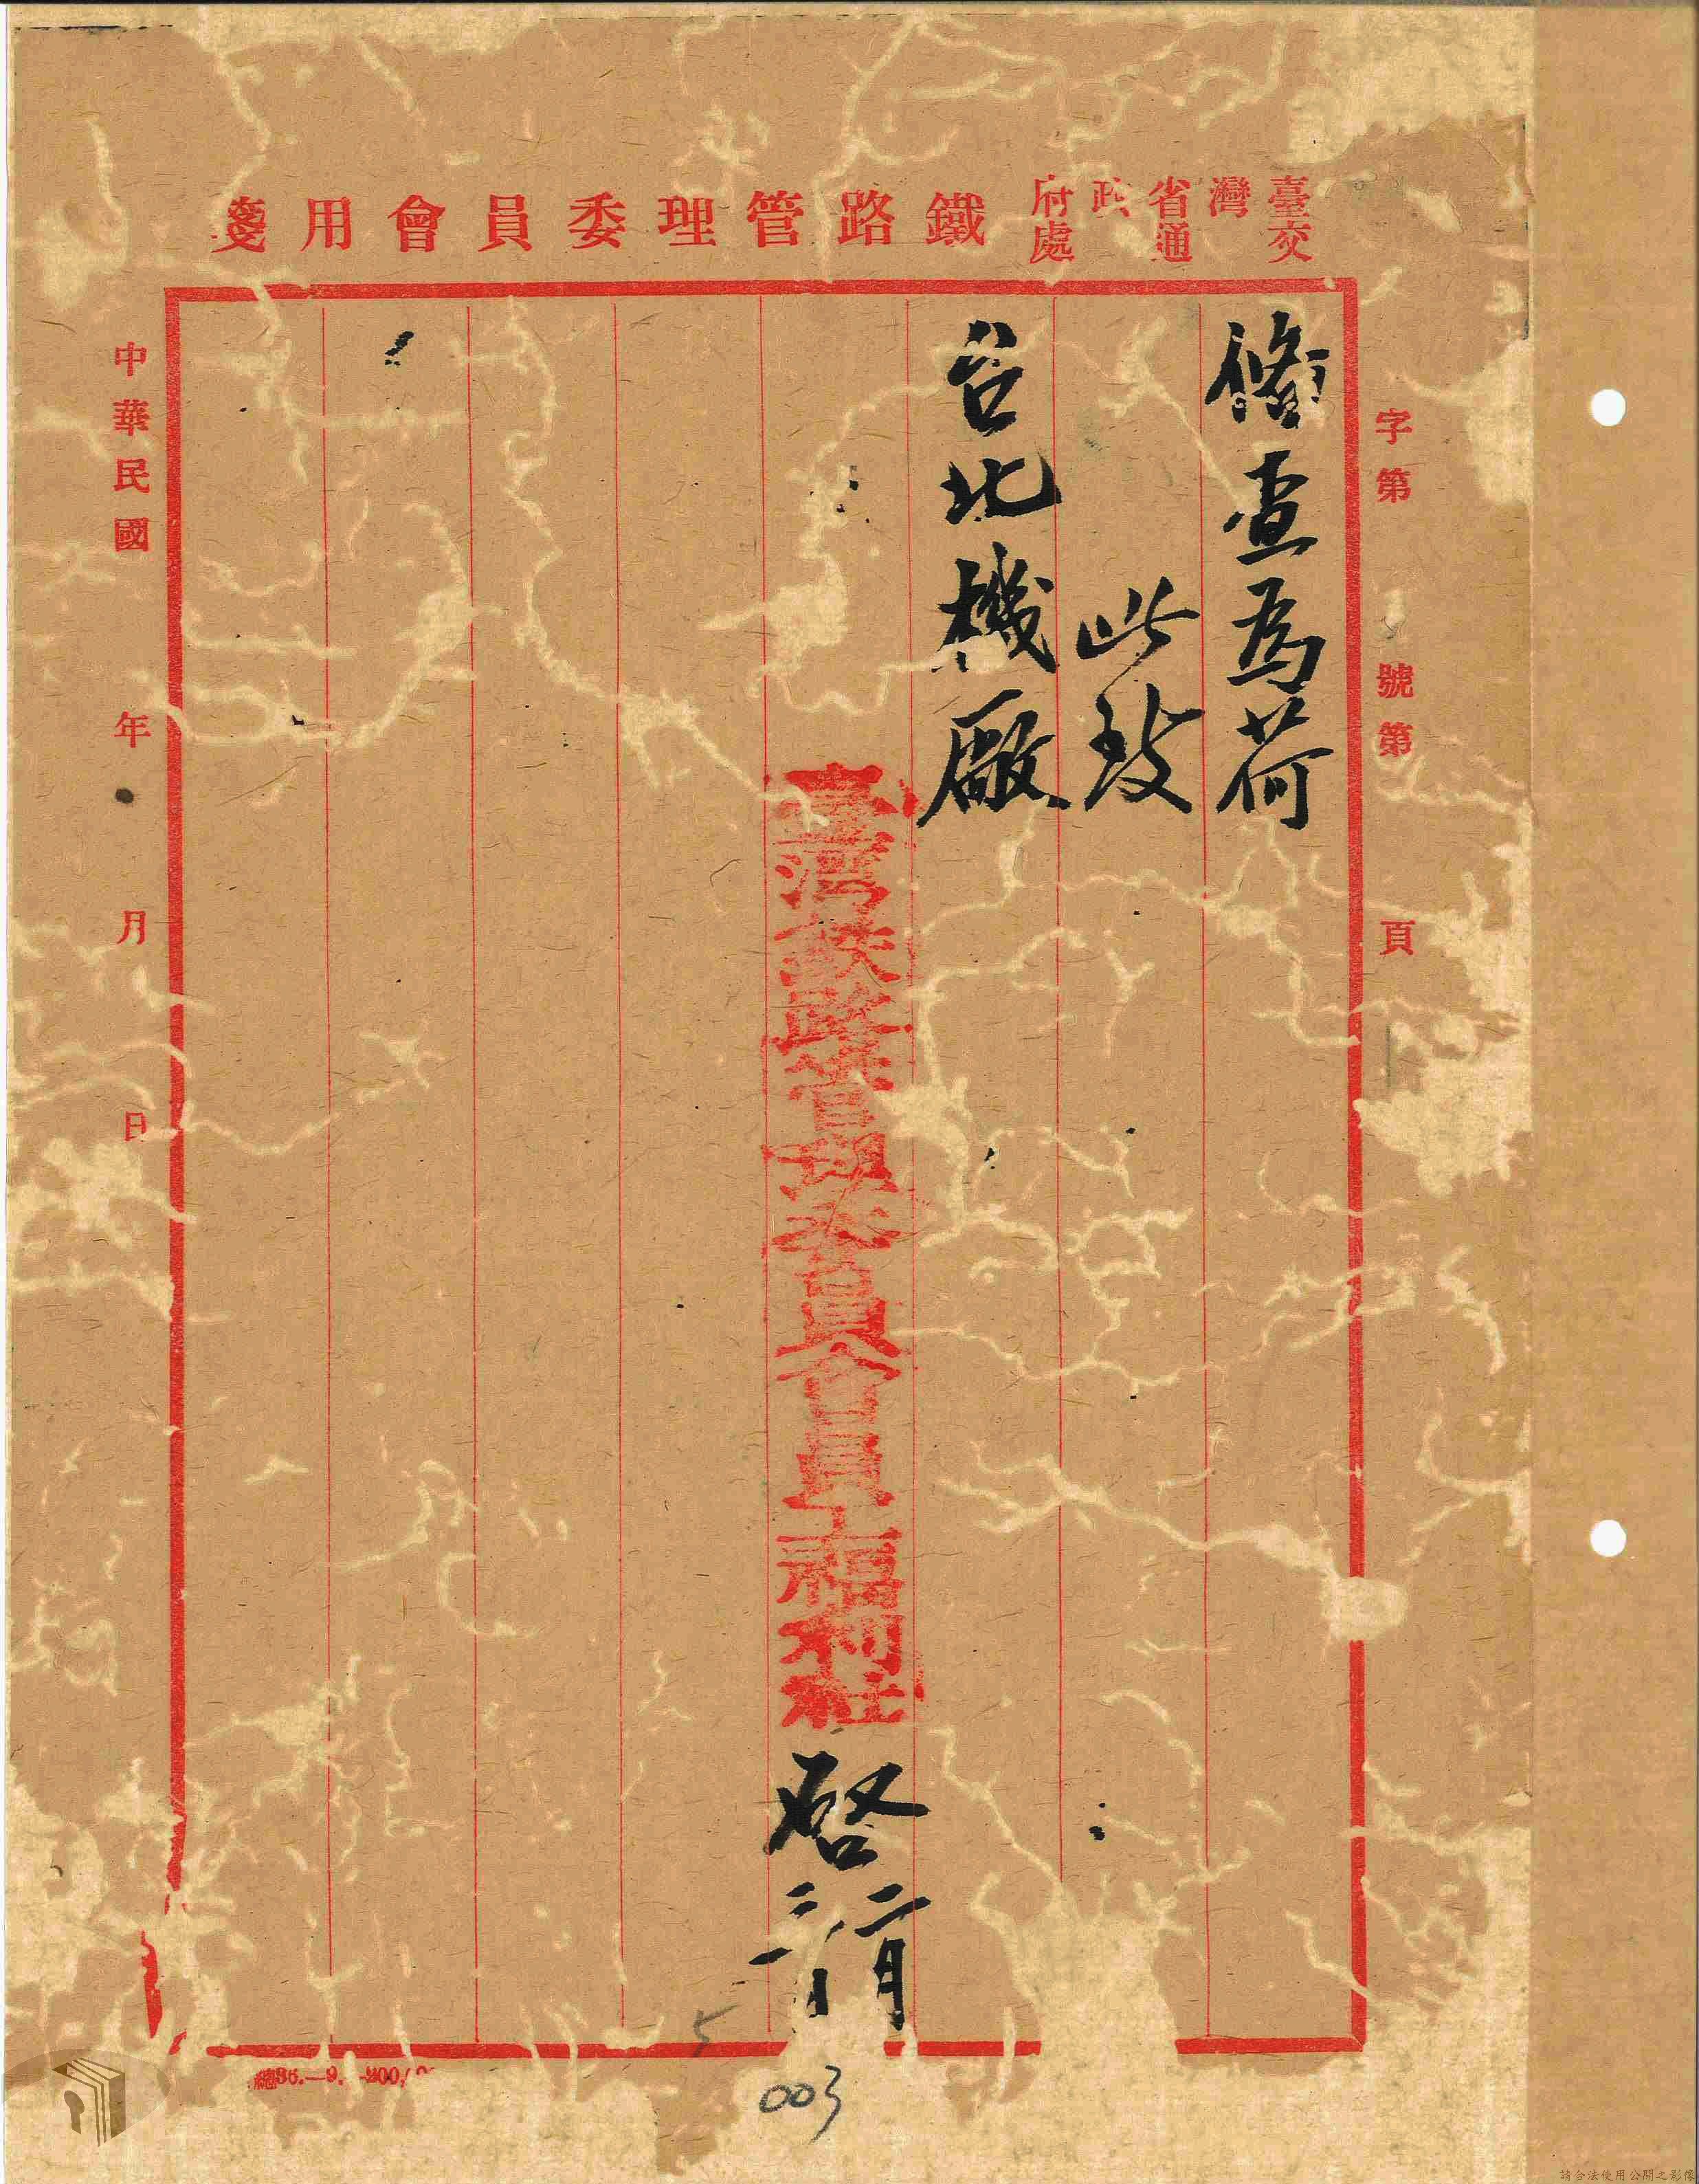 臺灣省政府交通處鐵路管理委員會用箋
字第 號第 頁
備查為荷
此致
台北機廠
臺灣鉄路管理委員會員工福利社 啓
中華民國 年 月 日
003
5
請合法使用公開之影像